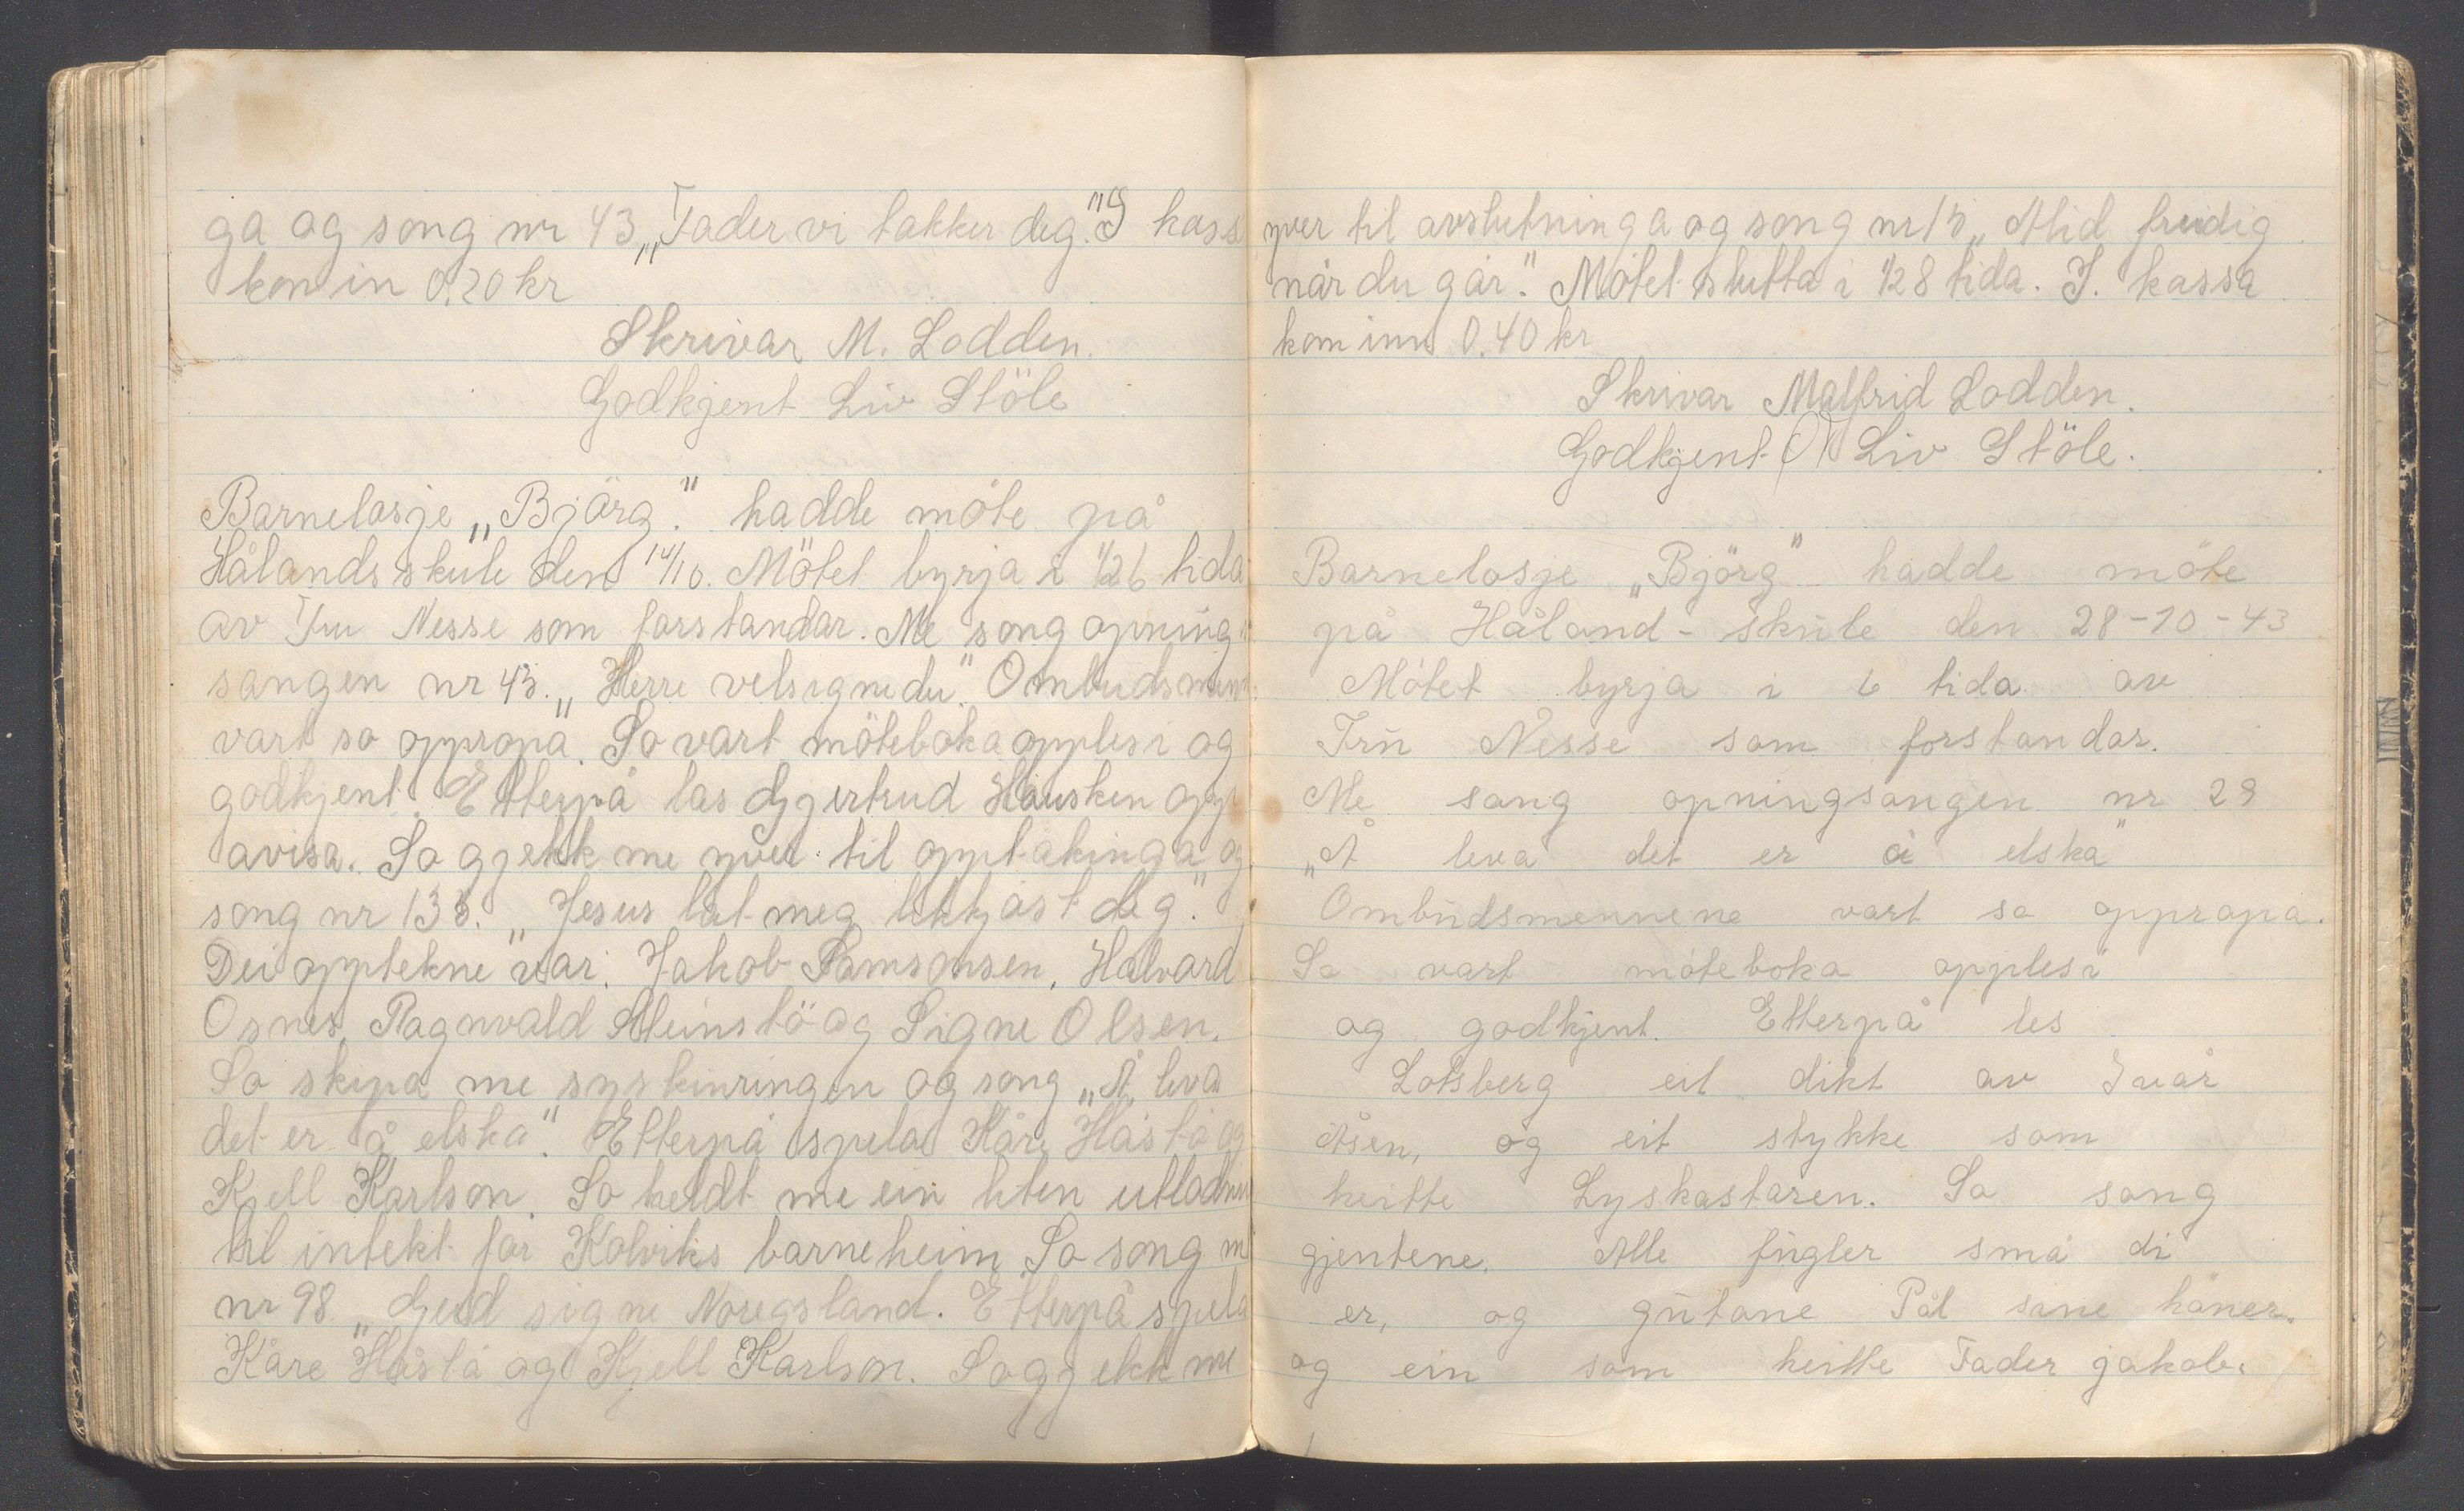 ga og song nr 43 „Fader vi takker deg." I kass
kom in 0,20 kr
Skrivar M. Lodden.
Godkjent Liv Stöle
Barnelosje „Björg." hadde möte på
Hålands skule den 14/10. Mötet byrja i 1/2 6 tida
av Fru Nesse som forstandar. Me song opning
sangen nr 43. „Herre velsigne du." Ombudsmenn
vart so oppropa. So vart möteboka opplesi og
godkjent. Etterpå las Gjertrud Hausken opp
avisa. So gjekk me yver til opptakinga og
song nr 133. „Jesus lat meg likkjast deg."
Dei opptekne var. Jakob Samsonsen, Halvard
Osnes, Ragnvald Steinstö og Signe Olsen.
So skipa me syskinringen og song „Å leva
det er å elska". Etterpå spela Kåre Håstå og
Kjell Karlson. So heldt me ein liten utlodnin
til intekt for Kolviks barneheim. So song m
nr 98 „Gud signe Noregsland. Etterpå spela
Kåre Håstå og Kjell Karlson. So gjekk me
yver til avslutninga og song nr 15 „Altid freidig
når du går". Mötet slutta i 1/2 8 tida. I. kassa
kom inn 0.40 kr
Skrivar Malfrid Lodden.
Godkjent Liv Stöle.
Barnelosje „Björg" hadde möte
på Håland - skule den 28-10-43
Mötet byrja i 6 tida av
Fru Nesse som forstandar.
Me song opningsongen nr 29
„Å leva det er å elska"
Ombudsmennene vart so oppropa.
So vart möteboka opplesi
og godkjent. Etterpå les
Lotsberg eit dikt av Ivår
Åsen, og eit stykke som
heitte Lyskastaren. So song
gjentene. Alle fugler små di
er, og gutane Pål sine höner.
og ein som heitte Fader jakob.